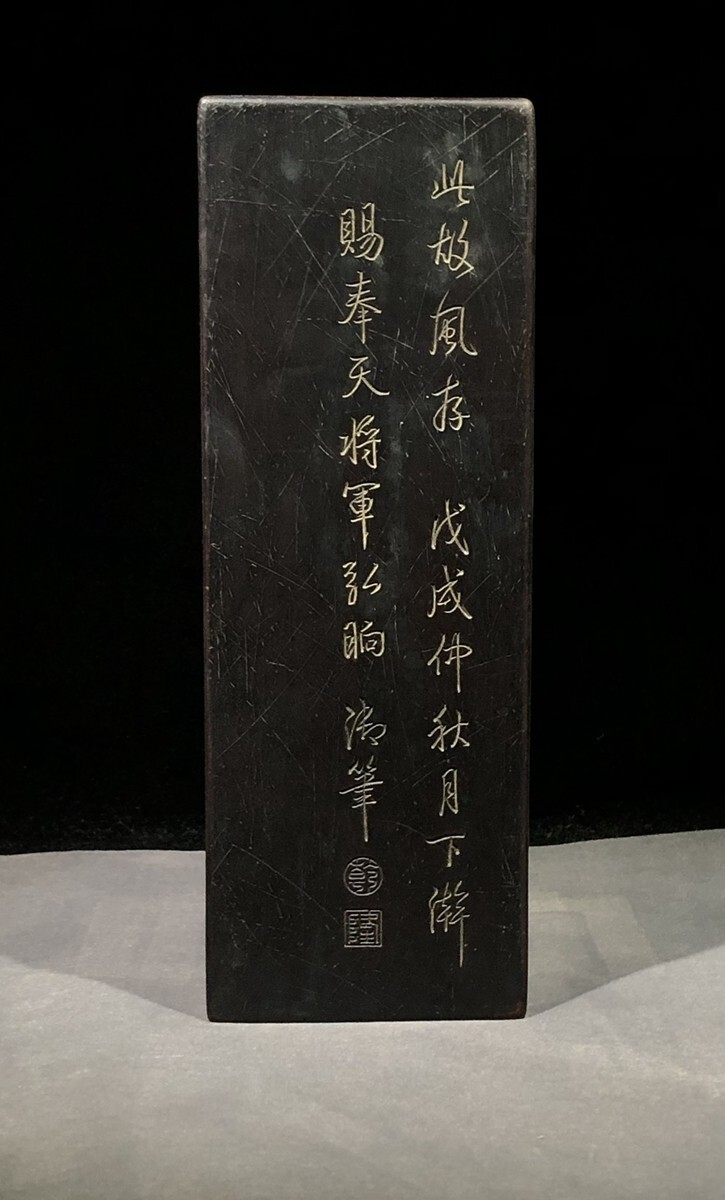 此故風存 戊戌仲秋月下澣
賜奉天将軍弘晌 御筆
乾
隆